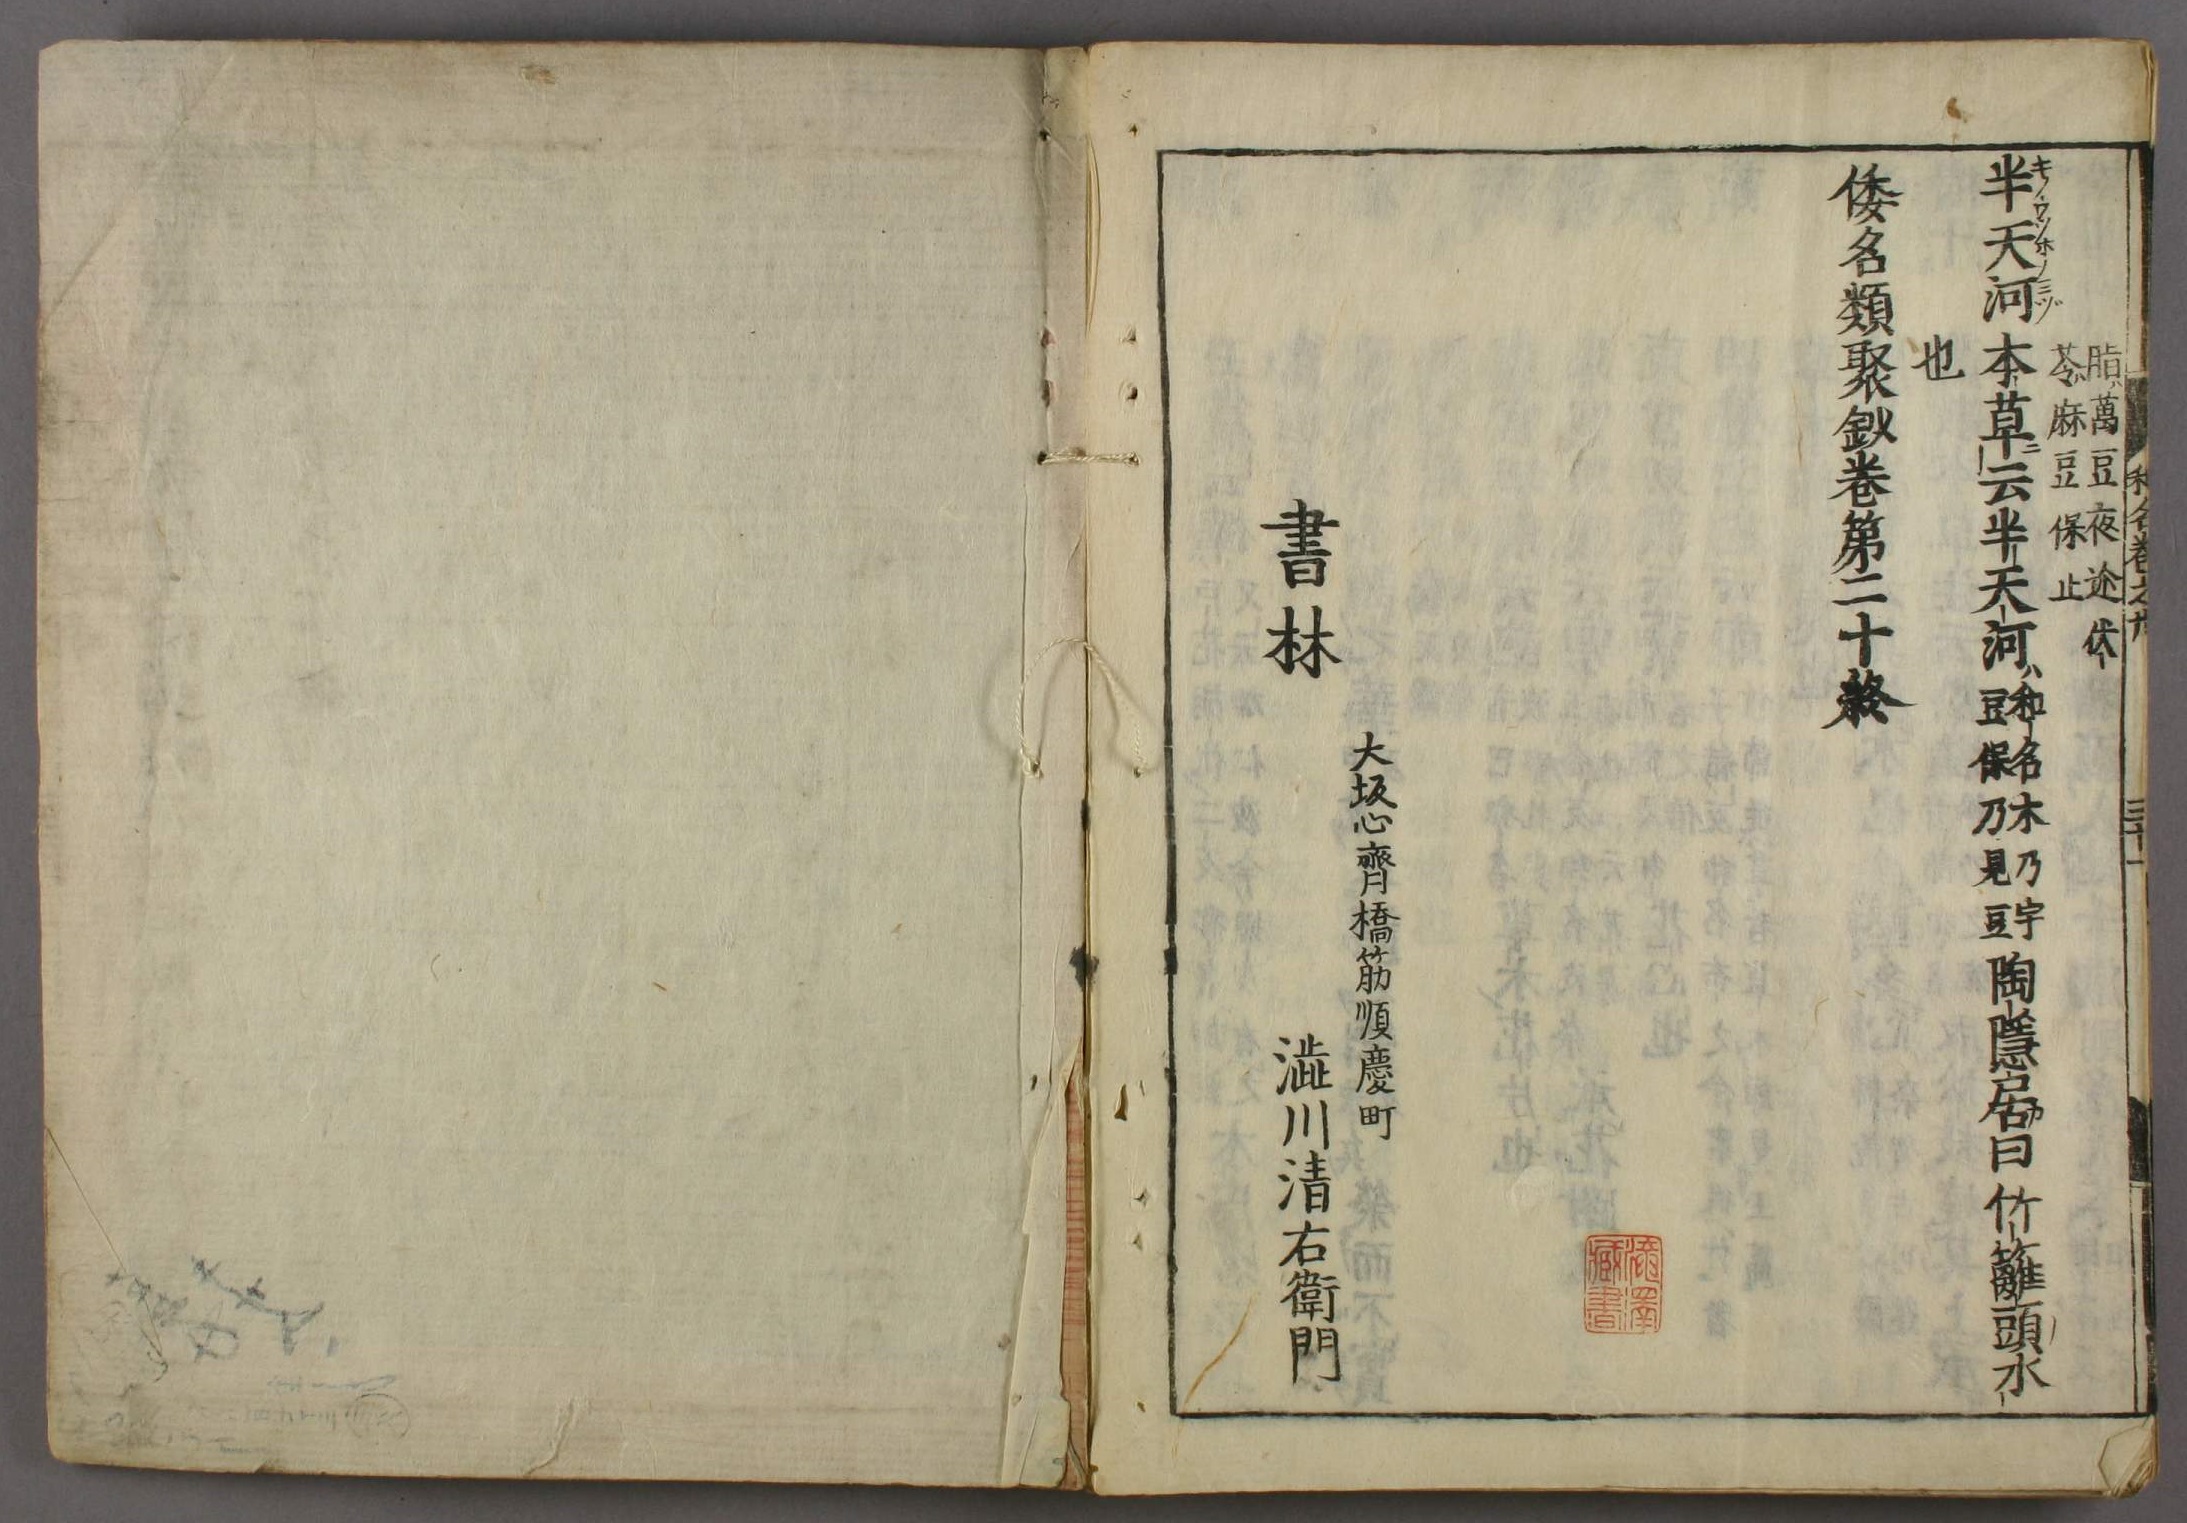 脂萬豆夜迩
苓麻豆保止
半天河本草云半天河和名木乃宇豆保乃見豆陶隱居曰竹籬頭水
キノウツホノミヅ
也
倭名類聚鈔卷第二十終
大坂心齊橋筋順慶町
書林
澁川清右衛門
和名卷之廿
三十一
藏書